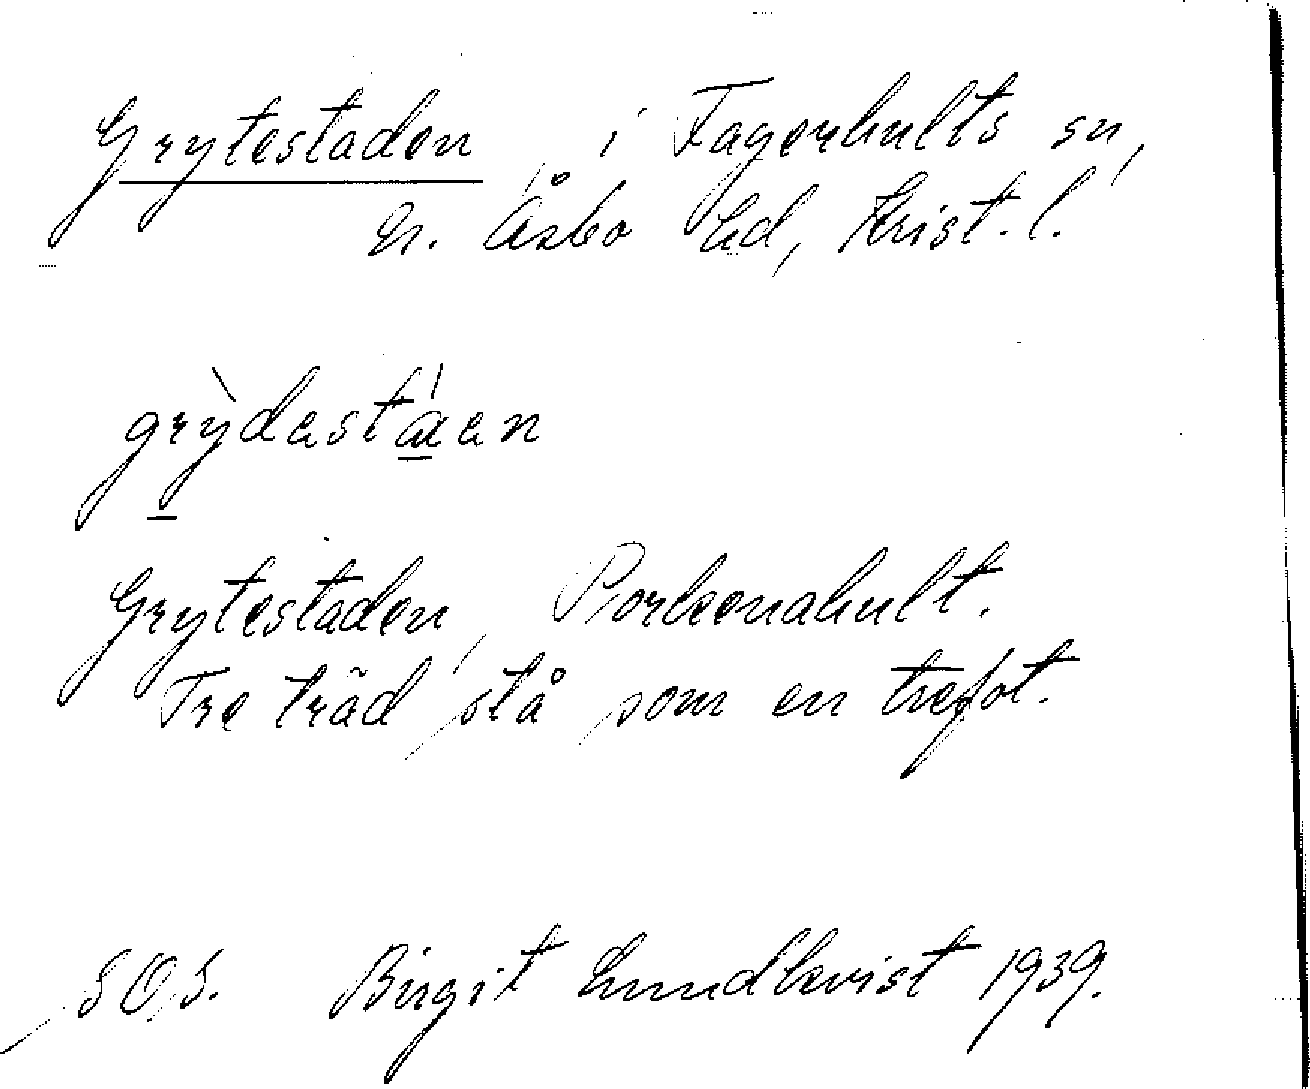 Grytestaden, i Fagerhults sn,
N. Åsbo hd, Krist. l.
grỳdastáan
Grytestaden, Porkenahult.
Tre träd stå som en trefot.
SOS. Birgit Lundkvist 1939.